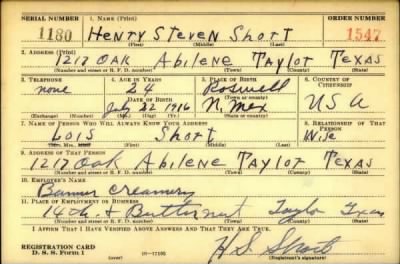 SERIAL NUMBER 1. NAME (Print) ORDER NUMBER
1180 HENRY STEVEN SHORT 1547
(First) (Middle) (Last)
2. ADDRESS (Print)
1217 OAK ABILENE TAYLOR TEXAS
(Number and street or R. F. D. number) (Town) (County) (State)
3. TELEPHONE 4. AGE IN YEARS 5. PLACE OF BIRTH 6. COUNTRY OF CITIZENSHIP
none 24 Roswell
DATE OF BIRTH (Town or county)
July 22 1916 N. Mex USA
(Mo.) (Day) (Yr.) (State or country)
7. NAME OF PERSON WHO WILL ALWAYS KNOW YOUR ADDRESS 8. RELATIONSHIP OF THAT PERSON
Lois Short Wife
(First) (Middle) (Last)
9. ADDRESS OF THAT PERSON
1217 Oak ABILENE TAYLOR TEXAS
(Number and street or R. F. D. number) (Town) (County) (State)
10. EMPLOYER'S NAME
Banner Creamery
11. PLACE OF EMPLOYMENT OR BUSINESS
14th & Butternut Taylor Texas
(Number and street or R. F. D. number) (Town) (County) (State)
I AFFIRM THAT I HAVE VERIFIED ABOVE ANSWERS AND THAT THEY ARE TRUE.
REGISTRATION CARD
D. S. S. Form 1 (over) H S Short